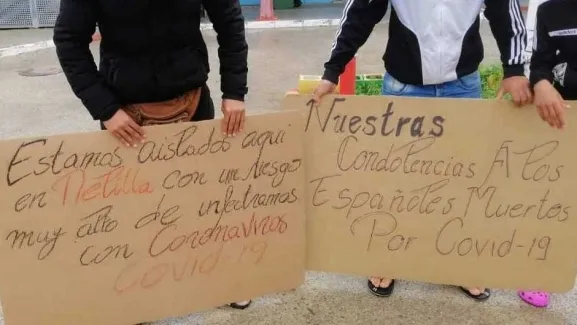 Estamos aislados aquí
en Melilla con un riesgo
muy alto de infectarnos
con Coronavirus
COVID-19
Nuestras
Condolencias A los
Españoles Muertos
Por Covid-19